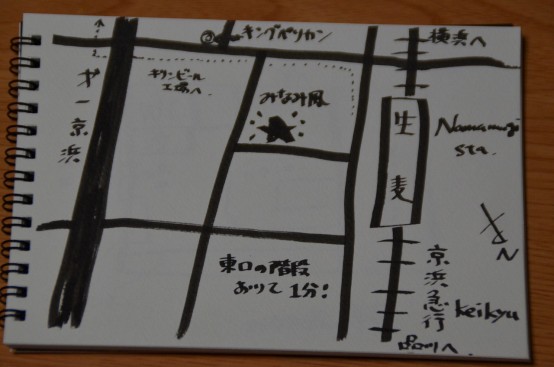 キングペリカン
横浜へ
キリンビール
工場へ
みなみ風
第一京浜
生麦
Namamugi
sta.
N
東口の階段
おりて1分!
京浜急行
keikyu
品川へ